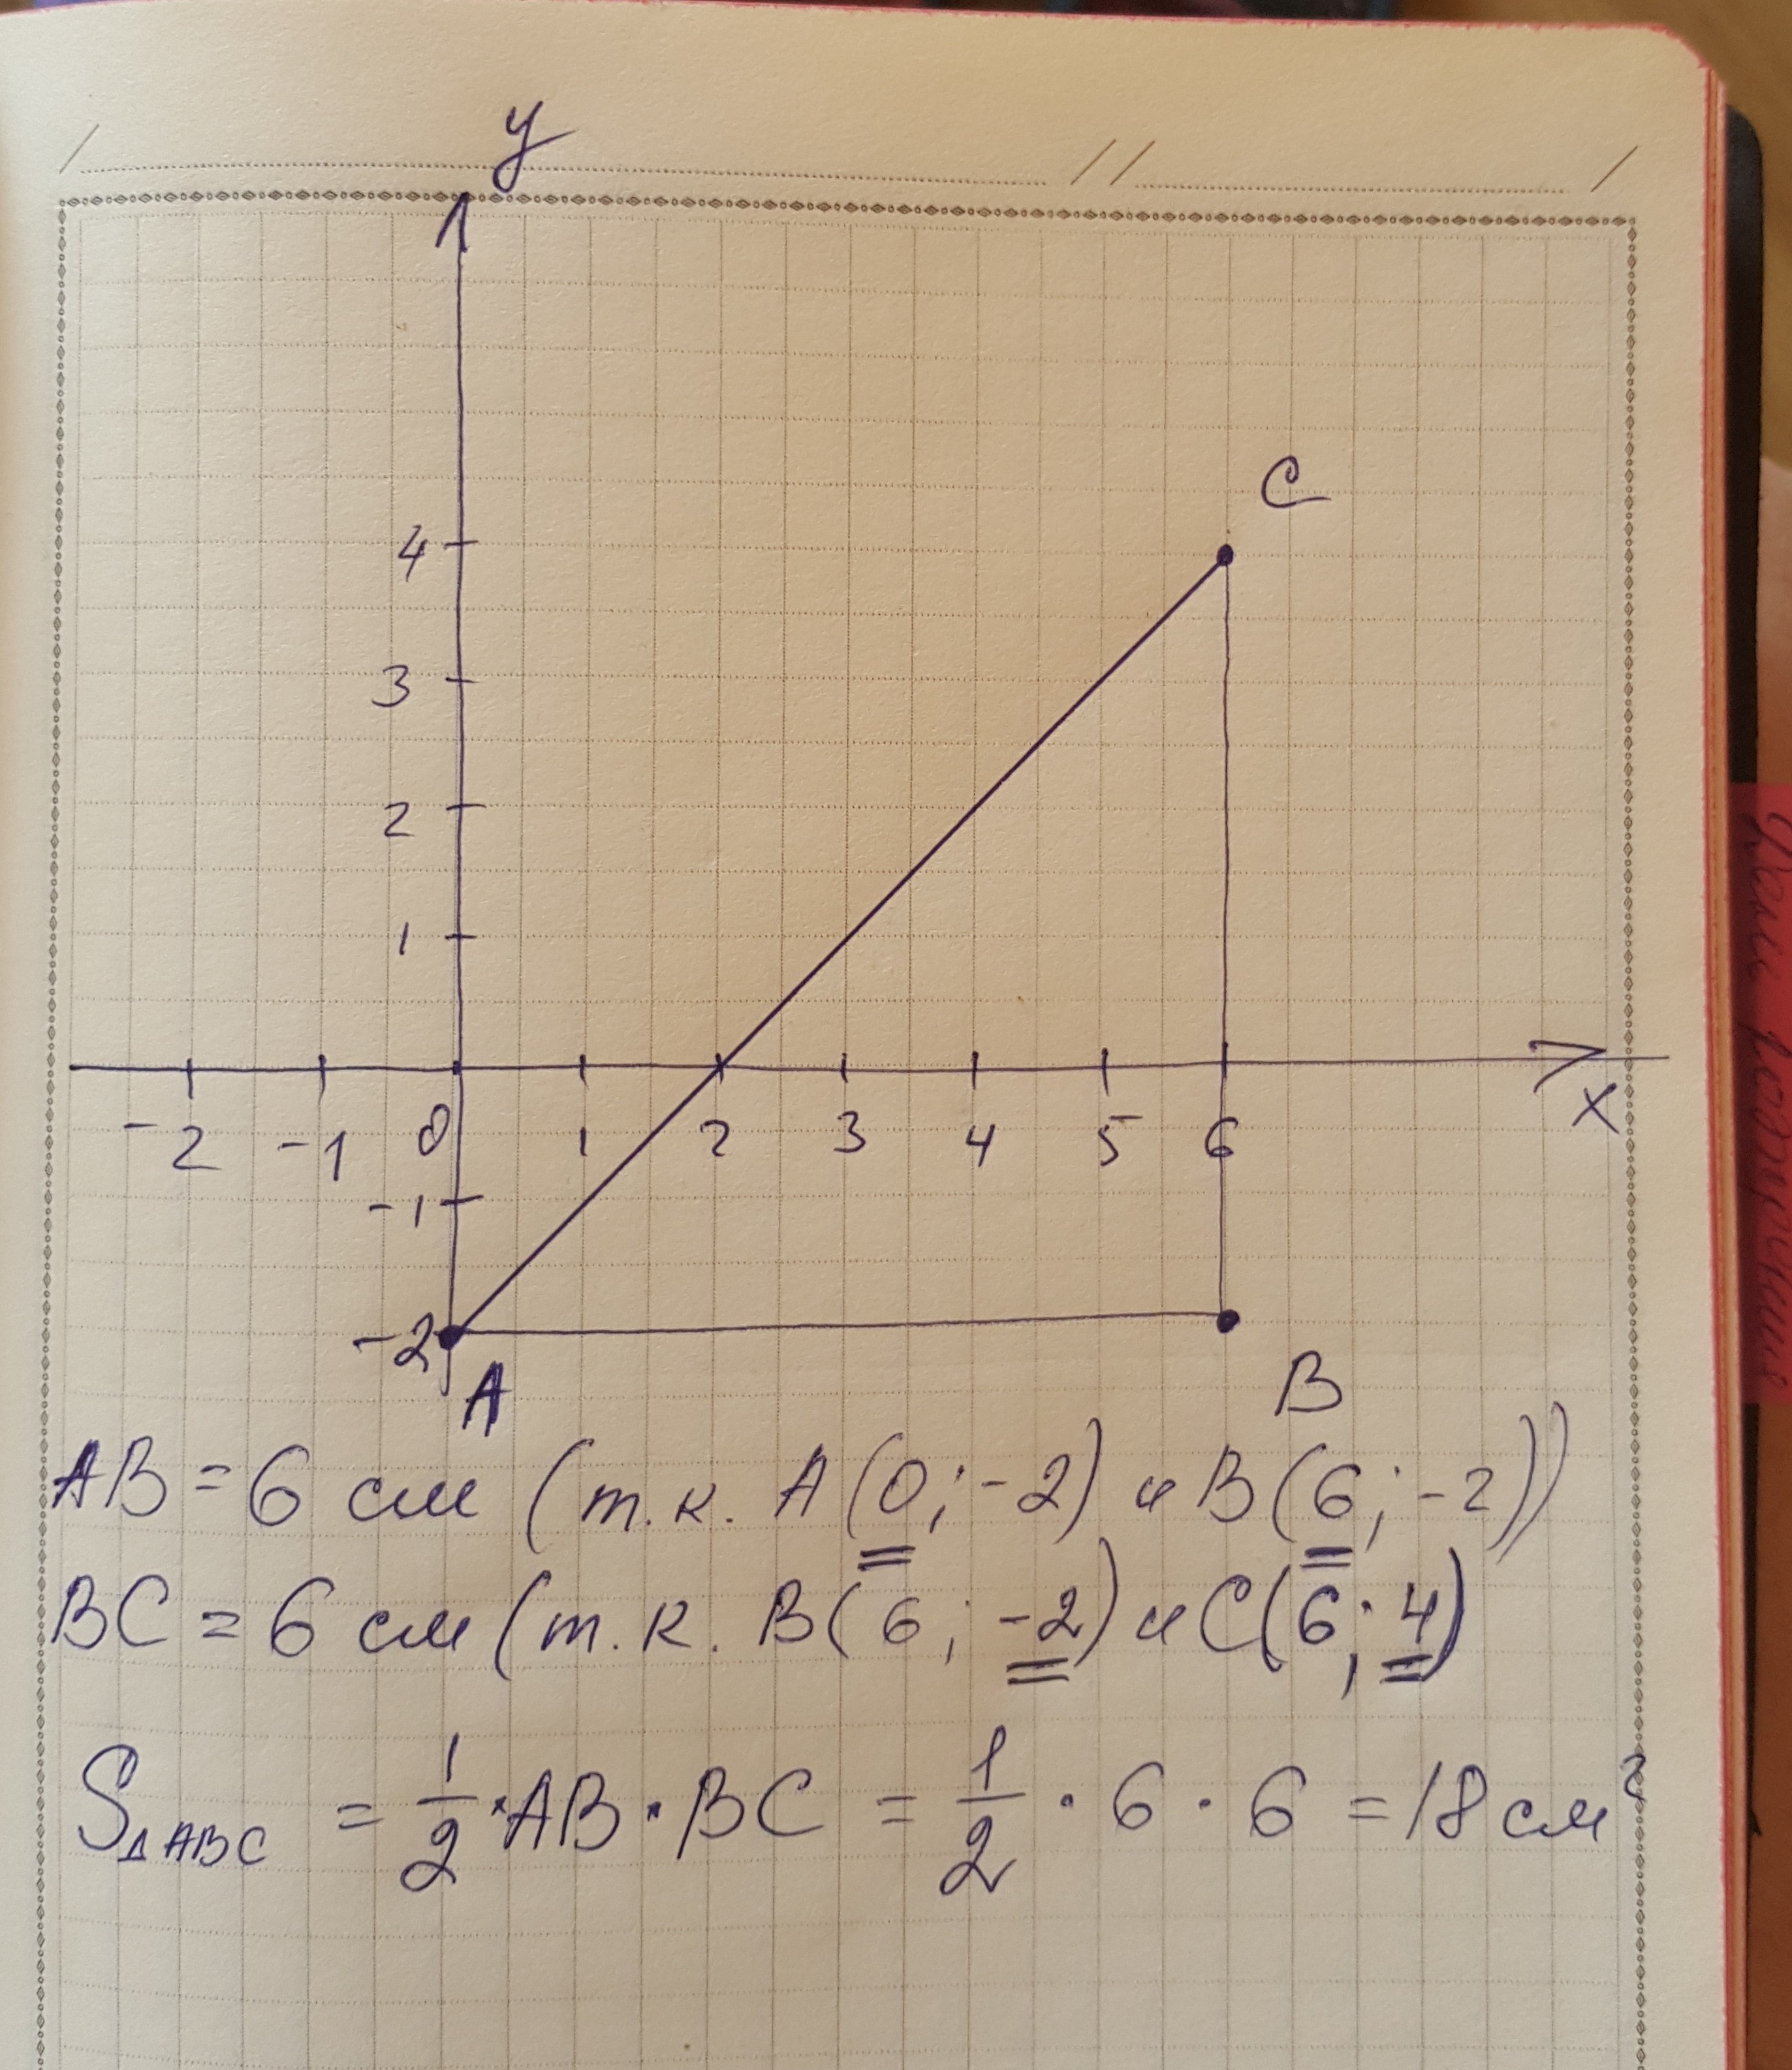 y
C
4
3
2
1
-2 -1 0 1 2 3 4 5 6 x
-1
-2
A B
AB = 6 см (т.к. A(0;-2) и B(6;-2))
BC = 6 см (т.к. B(6;-2) и C(6;4)
S△ABC = 1/2 · AB · BC = 1/2 · 6 · 6 = 18 см²